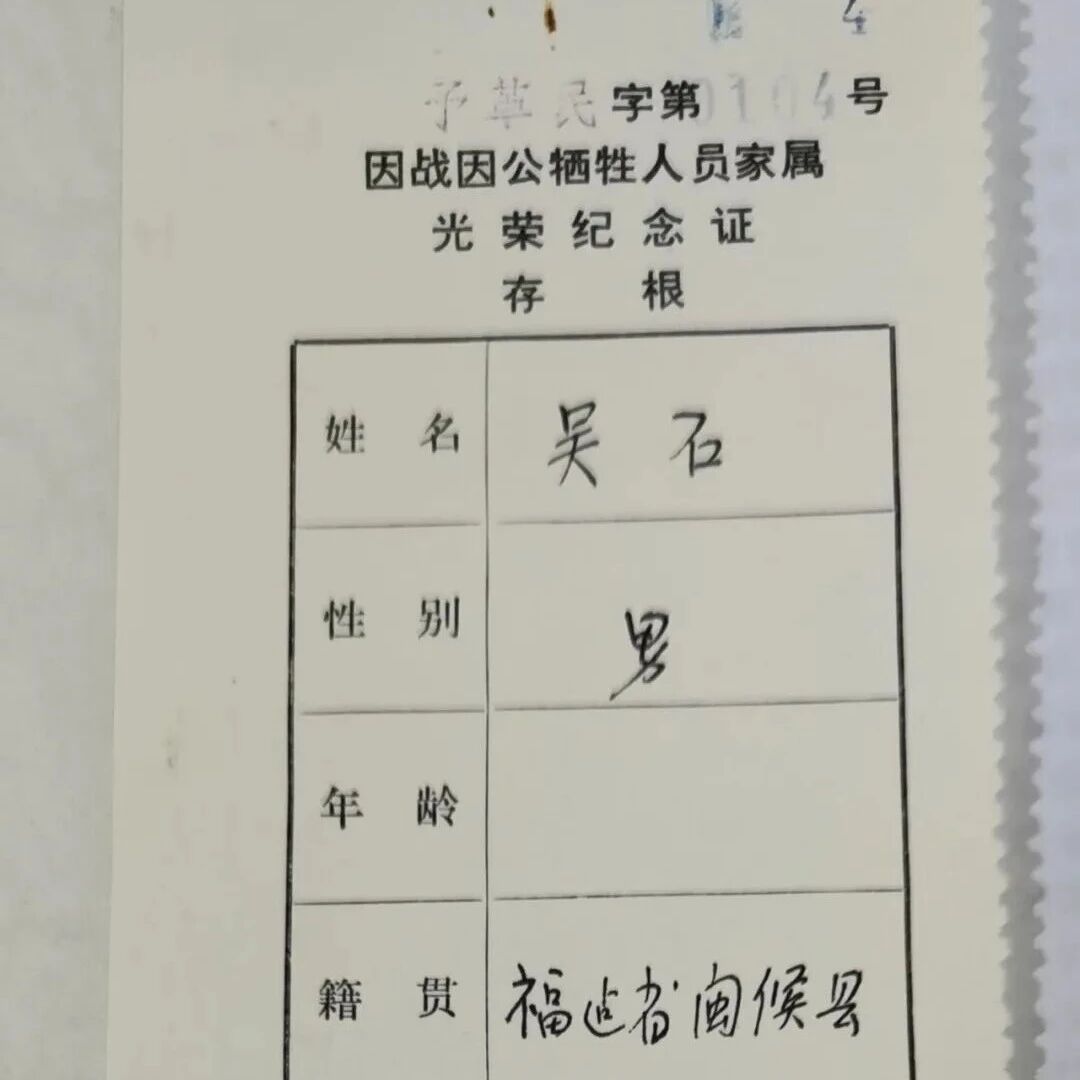 予革民字第0104号
因战因公牺牲人员家属
光荣纪念证
存 根
姓 名 吴 石
性 别 男
年 龄
籍 贯 福建省闽候县